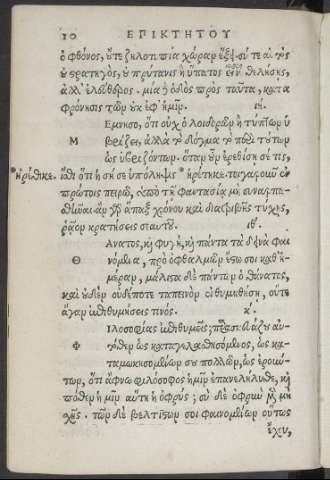 10 ΕΠΙΚΤΗΤΟΥ
ὁ φθόνος, οὔτε ζηλοτυπία χώραν ἔχει· σύ τε αὐτὸς
οὐ στρατηγὸς, οὐ πρύτανις ἢ ὕπατος εἶναι θελήσης,
ἀλλ' ἐλεύθερος. μία ἡ ὁδὸς πρὸς ταῦτα, κατα
φρόνησις τῶν οὐκ ἐφ' ἡμῖν. ιη.
Μ Εμνησο, ὅτι οὐχ ὁ λοιδορῶν ἢ τύπτων ὑ
βρίζει, ἀλλὰ τὸ δόγμα τὸ περὶ τούτων
ὡς ὑβριζόντων. ὅταν οὖν ἐρεθίση σέ τις,
*ἠρέθικε. ἴσθι ὅτι ἡ σή σε ὑπόληψις *ἠρέτηκε. τοιγαροῦν ἐν
πρώτοις πειρῶ, ὑπὸ τῆς φαντασίας μὴ συναρπα-
σθῆναι· ἂν γὰρ ἅπαξ χρόνου καὶ διατριβῆς τύχης,
ῥᾷον κρατήσεις σαυτοῦ. ιθ.
Θ Ανατος, καὶ φυγὴ, καὶ πάντα τὰ δεινὰ φαι
νόμενα, πρὸ ὀφθαλμῶν ἔστω σοι καθ' ἡ-
μέραν, μάλιστα δὲ πάντων ὁ θάνατος,
καὶ οὐδὲν οὐδέποτε ταπεινὸν ἐνθυμηθήση, οὔτε
ἄγαν ἐπιθυμήσεις τινός. κ.
Φ Ιλοσοφίας ἐπιθυμεῖς; παρασκευάζου αὐ-
τόθεν ὡς καταγελασθησόμενος, ὡς κα-
ταμωκησομένων σου πολλῶν, ὡς ἐρούν-
των, ὅτι ἄφνω φιλόσοφος ἡμῖν ἐπανελήλυθε, καὶ
πόθεν ἡμῖν αὕτη ἡ ὀφρύς; σὺ δὲ ὀφρὺν μὲν μὴ
σχῇς. τῶν δὲ βελτίστων σοι φαινομένων οὕτως
ἔχου,